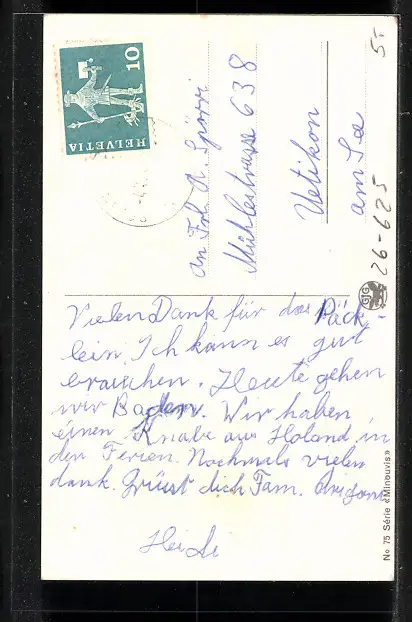 Vielen Dank für das Päck-
lein. Ich kann es gut
brauchen. Heute gehen
wir Baden. Wir haben
einen Knabe aus Holand in
den Ferien. Nochmals vielen
dank. Grüst dich Fam.
Heidi
An Frl. A. Spörri
Mühlestrasse 638
Uetikon
am See
HELVETIA
10
5.-
26-625
No 75 Série «Minouvis»